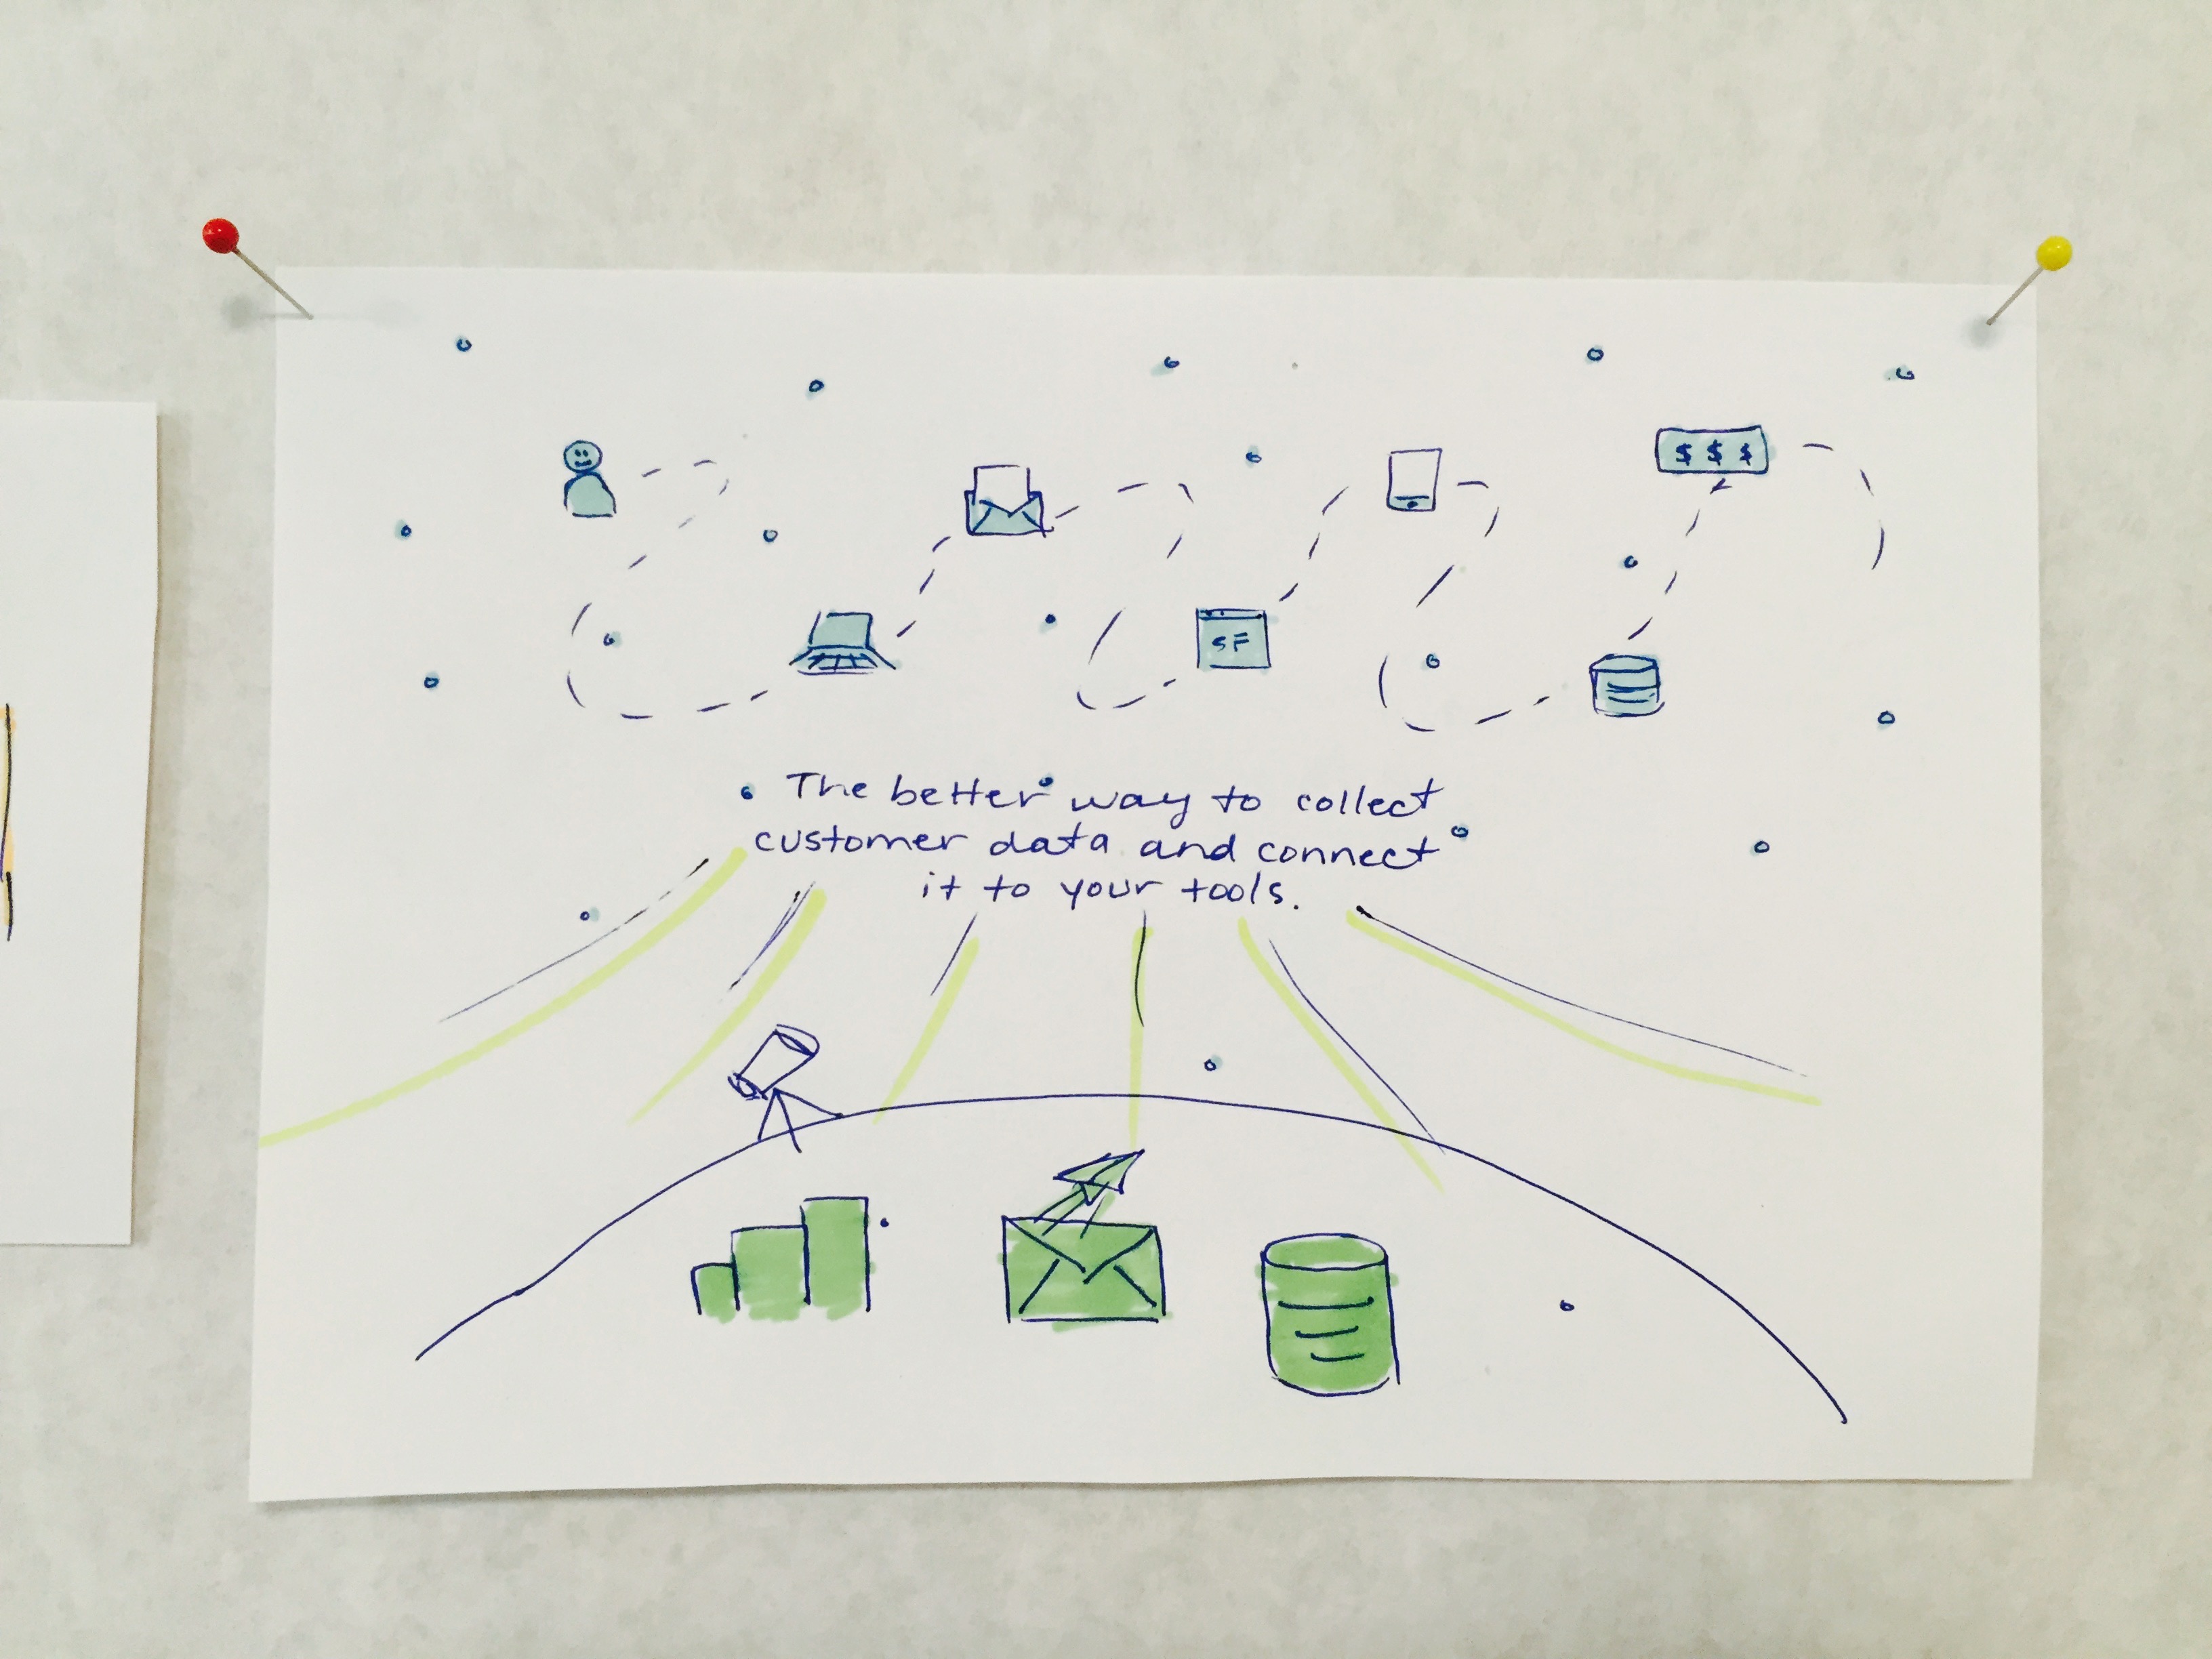 $ $ $
SF
The better way to collect
customer data and connect
it to your tools.